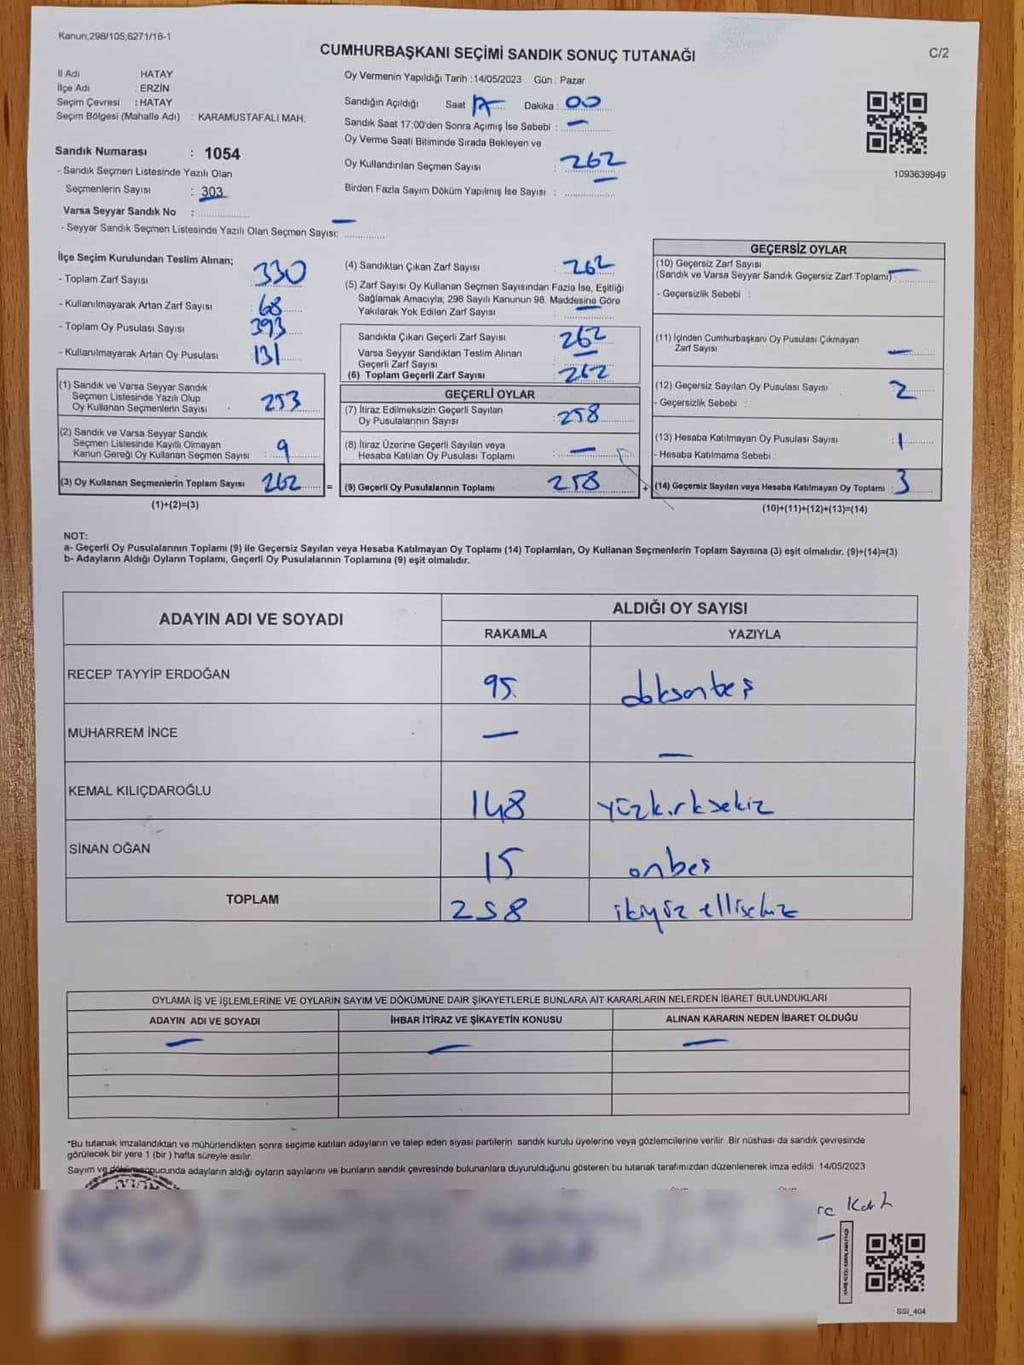 Kanun:298/105,6271/16-1
CUMHURBAŞKANI SEÇİMİ SANDIK SONUÇ TUTANAĞI
C/2
İl Adı : HATAY
İlçe Adı : ERZİN
Seçim Çevresi : HATAY
Seçim Bölgesi (Mahalle Adı) : KARAMUSTAFALI MAH.
Sandık Numarası : 1054
- Sandık Seçmen Listesinde Yazılı Olan
Seçmenlerin Sayısı : 303
Varsa Seyyar Sandık No :
- Seyyar Sandık Seçmen Listesinde Yazılı Olan Seçmen Sayısı: —
Oy Vermenin Yapıldığı Tarih :14/05/2023 Gün : Pazar
Sandığın Açıldığı Saat 17 Dakika : 00
Sandık Saat 17:00'den Sonra Açımış İse Sebebi : —
Oy Verme Saati Bitiminde Sırada Bekleyen ve
Oy Kullandırılan Seçmen Sayısı : 262
Birden Fazla Sayım Döküm Yapılmış İse Sayısı : —
1093639949
İlçe Seçim Kurulundan Teslim Alınan;
- Toplam Zarf Sayısı : 330
- Kullanılmayarak Artan Zarf Sayısı : 68
- Toplam Oy Pusulası Sayısı : 393
- Kullanılmayarak Artan Oy Pusulası : 131
(1) Sandık ve Varsa Seyyar Sandık
Seçmen Listesinde Yazılı Olup
Oy Kullanan Seçmenlerin Sayısı : 253
(2) Sandık ve Varsa Seyyar Sandık
Seçmen Listesinde Kayıtlı Olmayan
Kanun Gereği Oy Kullanan Seçmen Sayısı : 9
(3) Oy Kullanan Seçmenlerin Toplam Sayısı : 262
(1)+(2)=(3)
(4) Sandıktan Çıkan Zarf Sayısı : 262
(5) Zarf Sayısı Oy Kullanan Seçmen Sayısından Fazla İse, Eşitliği
Sağlamak Amacıyla; 298 Sayılı Kanunun 98. Maddesine Göre
Yakılarak Yok Edilen Zarf Sayısı : —
Sandıkta Çıkan Geçerli Zarf Sayısı : 262
Varsa Seyyar Sandıktan Teslim Alınan
Geçerli Zarf Sayısı : —
(6) Toplam Geçerli Zarf Sayısı : 262
GEÇERLİ OYLAR
(7) İtiraz Edilmeksizin Geçerli Sayılan
Oy Pusulalarının Sayısı : 258
(8) İtiraz Üzerine Geçerli Sayılan veya
Hesaba Katılan Oy Pusulası Toplamı : —
= (9) Geçerli Oy Pusulalarının Toplamı : 258
GEÇERSİZ OYLAR
(10) Geçersiz Zarf Sayısı
(Sandık ve Varsa Seyyar Sandık Geçersiz Zarf Toplamı) : —
- Geçersizlik Sebebi :
(11) İçinden Cumhurbaşkanı Oy Pusulası Çıkmayan
Zarf Sayısı : —
(12) Geçersiz Sayılan Oy Pusulası Sayısı : 2
- Geçersizlik Sebebi :
(13) Hesaba Katılmayan Oy Pusulası Sayısı : 1
- Hesaba Katılmama Sebebi :
+ (14) Geçersiz Sayılan veya Hesaba Katılmayan Oy Toplamı : 3
(10)+(11)+(12)+(13)=(14)
NOT:
a- Geçerli Oy Pusulalarının Toplamı (9) ile Geçersiz Sayılan veya Hesaba Katılmayan Oy Toplamı (14) Toplamları, Oy Kullanan Seçmenlerin Toplam Sayısına (3) eşit olmalıdır. (9)+(14)=(3)
b- Adayların Aldığı Oyların Toplamı, Geçerli Oy Pusulalarının Toplamına (9) eşit olmalıdır.
ADAYIN ADI VE SOYADI ALDIĞI OY SAYISI
RAKAMLA YAZIYLA
RECEP TAYYİP ERDOĞAN 95 doksanbeş
MUHARREM İNCE — —
KEMAL KILIÇDAROĞLU 148 yüzkırksekiz
SİNAN OĞAN 15 onbeş
TOPLAM 258 ikiyüz ellisekiz
OYLAMA İŞ VE İŞLEMLERİNE VE OYLARIN SAYIM VE DÖKÜMÜNE DAİR ŞİKAYETLERLE BUNLARA AİT KARARLARIN NELERDEN İBARET BULUNDUKLARI
ADAYIN ADI VE SOYADI İHBAR İTİRAZ VE ŞİKAYETİN KONUSU ALINAN KARARIN NEDEN İBARET OLDUĞU
— — —
*Bu tutanak imzalandıktan ve mühürlendikten sonra seçime katılan adayların ve talep eden siyasi partilerin sandık kurulu üyelerine veya gözlemcilerine verilir .Bir nüshası da sandık çevresinde
görülecek bir yere 1 (bir ) hafta süreyle asılır.
Sayım ve döküm sonucunda adayların aldığı oyların sayılarını ve bunların sandık çevresinde bulunanlara duyurulduğunu gösteren bu tutanak tarafımızdan düzenlenerek imza edildi. 14/05/2023
SSI_404